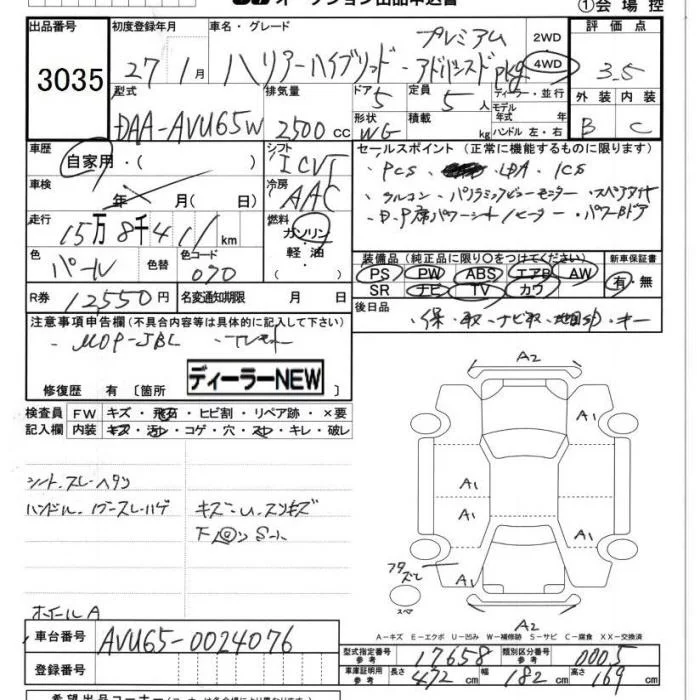 オークション出品申込書
①会場控
出品番号
3035
初度登録年月
27年1月
車名・グレード
プレミアム
ハリアーハイブリッド・アドバンスドpkg
2WD
4WD
評価点
3.5
型式
DAA-AVU65W
排気量
2500cc
ドア
5
形状
WG
定員
5人
積載
kg
ディーラー・並行
モデル年式 年
ハンドル 左・右
外装 内装
B C
車歴
自家用・( )
シフト
ICVT
セールスポイント(正常に機能するものに限ります)
・PCS ・LDA ・ICS
・クルコン ・パノラミックビューモニター ・スペアタイヤ
・D.P席パワーシート/ヒーター ・パワーBドア
車検
年 月( 日)
冷房
AAC
走行
15万8千411km
燃料
ガソリン
軽油
( )
色
パール
色替
色コード
070
装備品(純正品に限り○をつけてください)
PS PW ABS エアB AW
SR ナビ TV カワ
新車保証書
有・無
R券
12550円
名変通知期限 月 日
後日品
・保・取・ナビ取・地図SD・キー
注意事項申告欄(不具合内容等は具体的に記入して下さい)
・MOP-JBL ・TVキット
ディーラーNEW
修復歴 有 〔箇所
検査員記入欄
FW キズ・飛石・ヒビ割・リペア跡・×要
内装 キズ・汚レ・コゲ・穴・スレ・キレ・破レ
シート.スレ.ヘタリ
ハンドル.ノブ.スレ.ハゲ
キズ.U.スリキズ
ホイールA
A2
A1
A1
A1
A1
A1
A2
スペア
A-キズ E-エクボ U-凹み W-補修跡 S-サビ C-腐食 XX-交換済
車台番号
AVU65-0024076
登録番号
型式指定番号 参考
17658
類別区分番号 参考
0005
車庫証明用 参考
長さ 472cm 幅 182cm 高さ 169cm
希望出品コーナー